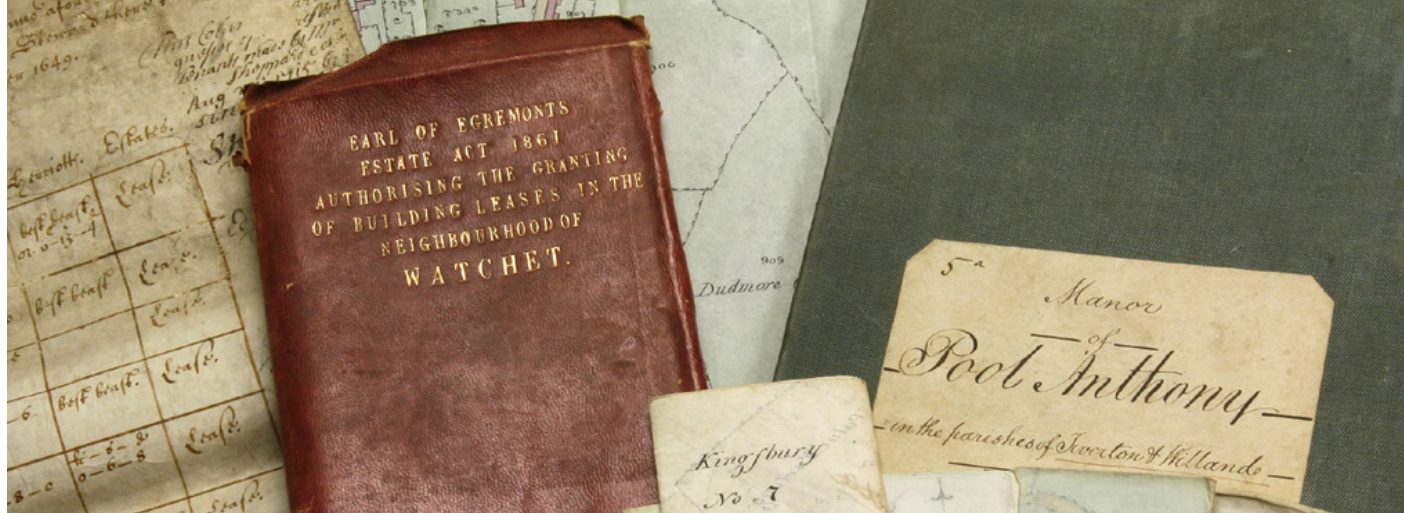 er 1649.
Aug
Herriotts. Estates.
best beast. Lease.
or 0-13-4
best beast Lease.
Lease.
best beast. Lease.
0-6-8 Lease.
Lease.
EARL OF EGREMONTS
ESTATE ACT 1861
AUTHORISING THE GRANTING
OF BUILDING LEASES IN THE
NEIGHBOURHOOD OF
WATCHET.
906
909
Dudmore
Kingsbury
No 7
5a
Manor
of
Pool Anthony
in the parishes of Tiverton & Willande